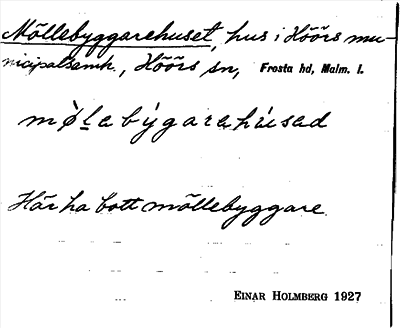 Möllebyggarehuset, hus i Höörs mu-
nicipalsamh., Höörs sn, Frosta hd, Malm. l.
mø̀l̲ebýgarehúsəd
Här ha bott möllebyggare.
EINAR HOLMBERG 1927